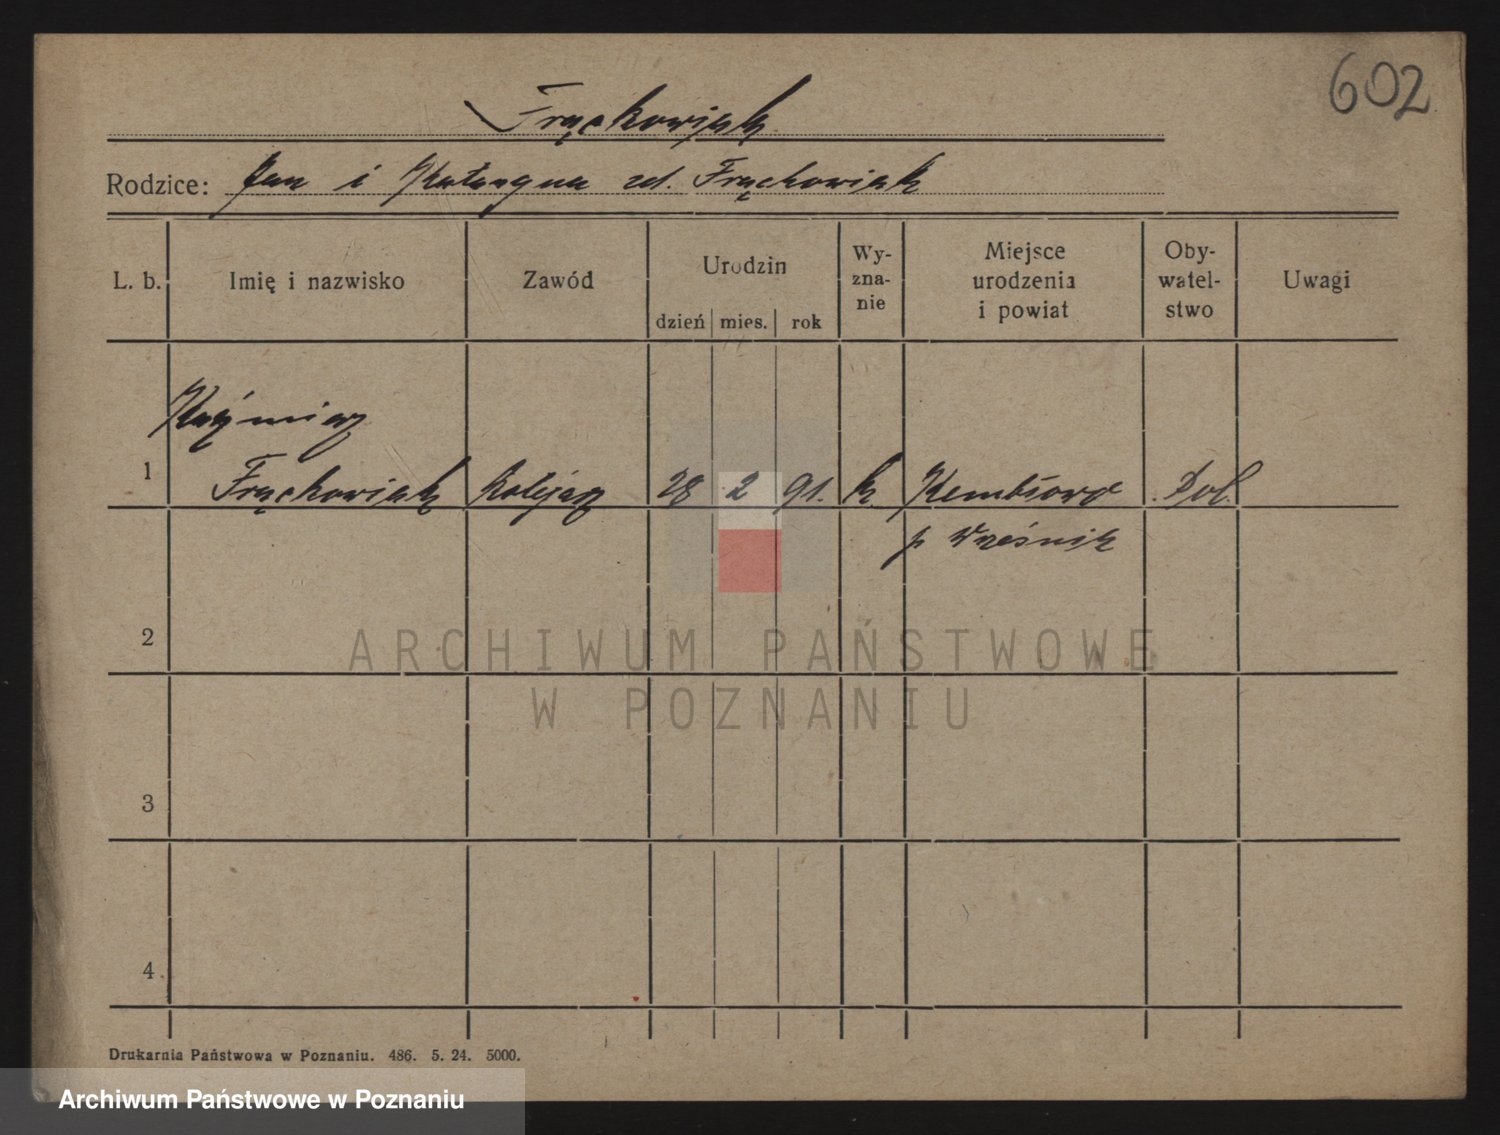 602
Frąckowiak
Rodzice: Jan i Katarzyna zd. Frąckowiak
L. b. Imię i nazwisko Zawód Urodzin dzień mies. rok Wy-znanie Miejsce urodzenia i powiat Oby-watel-stwo Uwagi
Kaźmierz
1 Frąckowiak Kolejarz 28 2 91. k. Pol.
p Wrześnik
2
ARCHIWUM PAŃSTWOWE
W POZNANIU
3
4
Drukarnia Państwowa w Poznaniu. 486. 5. 24. 5000.
Archiwum Państwowe w Poznaniu